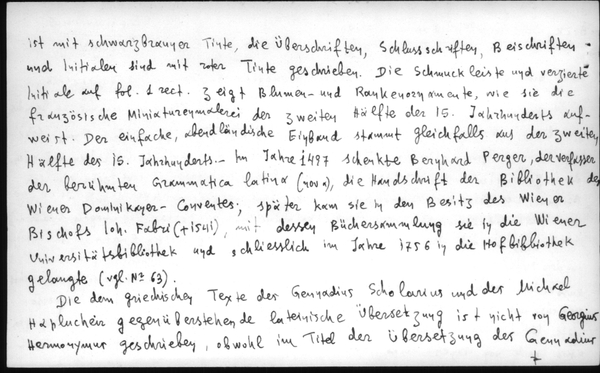 ist mit schwarzbrauner Tinte, die Überschriften, Schlussschriften, Beischriften
und Initialen sind mit roter Tinte geschrieben. Die Schmuckleiste und verzierte
Initiale auf fol. 1 rect. zeigt Blumen- und Rankenornamente, wie sie die
französische Miniaturenmalerei der zweiten Hälfte der 15. Jahrhunderts auf-
weist. Der einfache, abendländische Einband stammt gleichfalls aus der zweiten
Hälfte des 15. Jahrhunderts.– Im Jahre 1497 schenkte Bernhard Perger, der verfasser
der berühmten Grammatica latina (nova), die Handschrift der Bibliothek des
Wiener Dominikaner-Conventes; später kam sie in den Besitz des Wiener
Bischofs Joh. Fabri (+1541), mit dessen Büchersammlung sie in die Wiener
Universitätsbibliothek und schliesslich im Jahre 1756 in die Hofbibliothek
gelangte (vgl. Nº 63).
Die dem griechischen Texte des Gennadius Scholarius und des Michael
Haplucheir gegenüberstehende lateinische Übersetzung ist nicht von Georgius
Hermonymus geschrieben, obwohl im Titel der Übersetzung des Gennadius
+